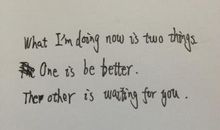 What I'm doing now is two things.
One is be better.
The other is waiting for you.